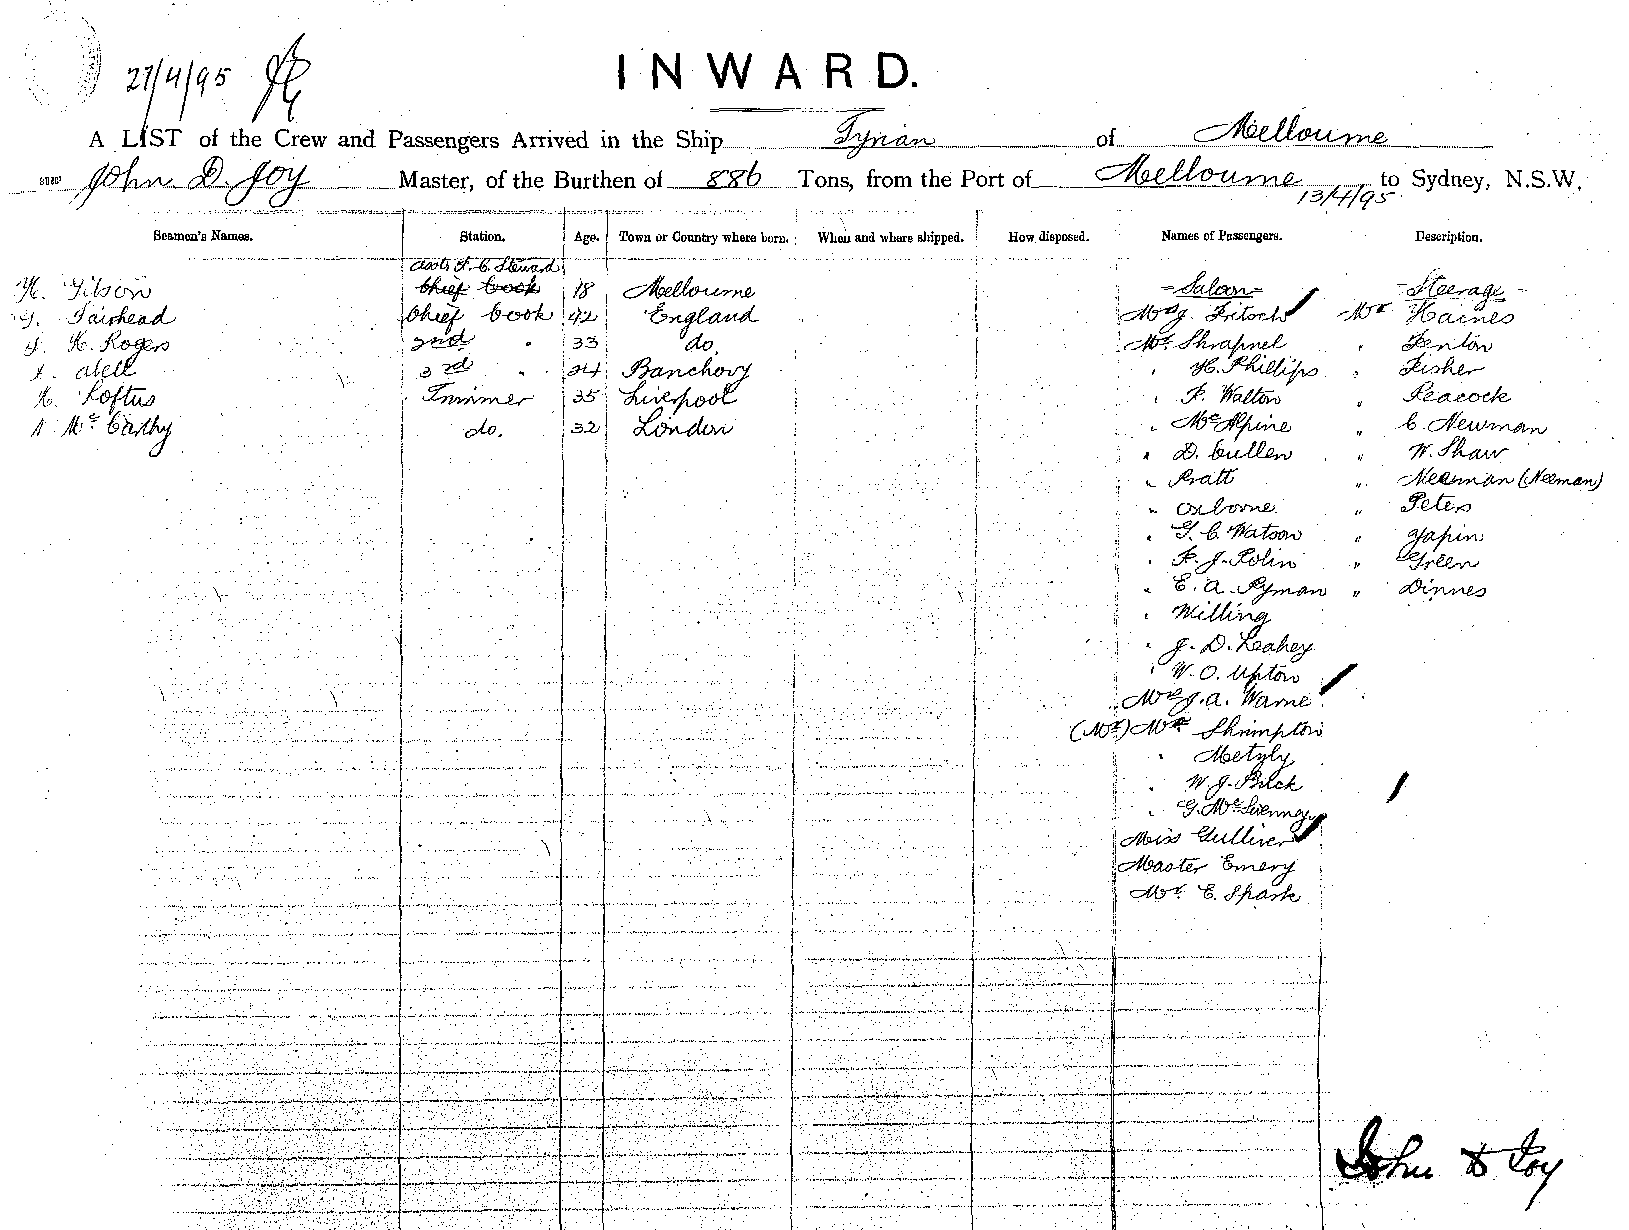 27/4/95
INWARD.
A LIST of the Crew and Passengers Arrived in the Ship Tyrian of Melbourne
John D. Joy Master, of the Burthen of 886 Tons, from the Port of Melbourne to Sydney, N.S.W,
13/4/95
Seamen's Names. Station. Age. Town or Country where born. When and where shipped. How disposed. Names of Passengers. Description.
Asst F. C. Steward
H. Gibson Chief Cook 18 Melbourne =Saloon= -Steerage-
Fairhead Chief Cook 42 England Mrs J. Fritsch Mr Haines
H. Rogers 2nd " 33 do. Mr Shrapnel " Fenton
Abell 3rd " 24 Banchory " H. Phillips " Fisher
H. Loftus Trimmer 35 Liverpool " F. Walton " Peacock
McCarthy do. 32 London " McAlpine " C. Newman
" D. Cullen " W. Shaw
" Pratt " Neeman (Neeman)
" Osborne " Peters
" G. C. Watson " Yapin
" F. J. Polin " Green
" E. A. Pyman " Dinnes
" Milling
" J. D. Leahey
" W. O. Upton
Mrs J. A. Warne
(Mr) Mr Shrimpton
" Metzly
" W J. Brick
" G. Mc
Miss Gulliver
Master Emery
Mr. E. Spark
John D Joy